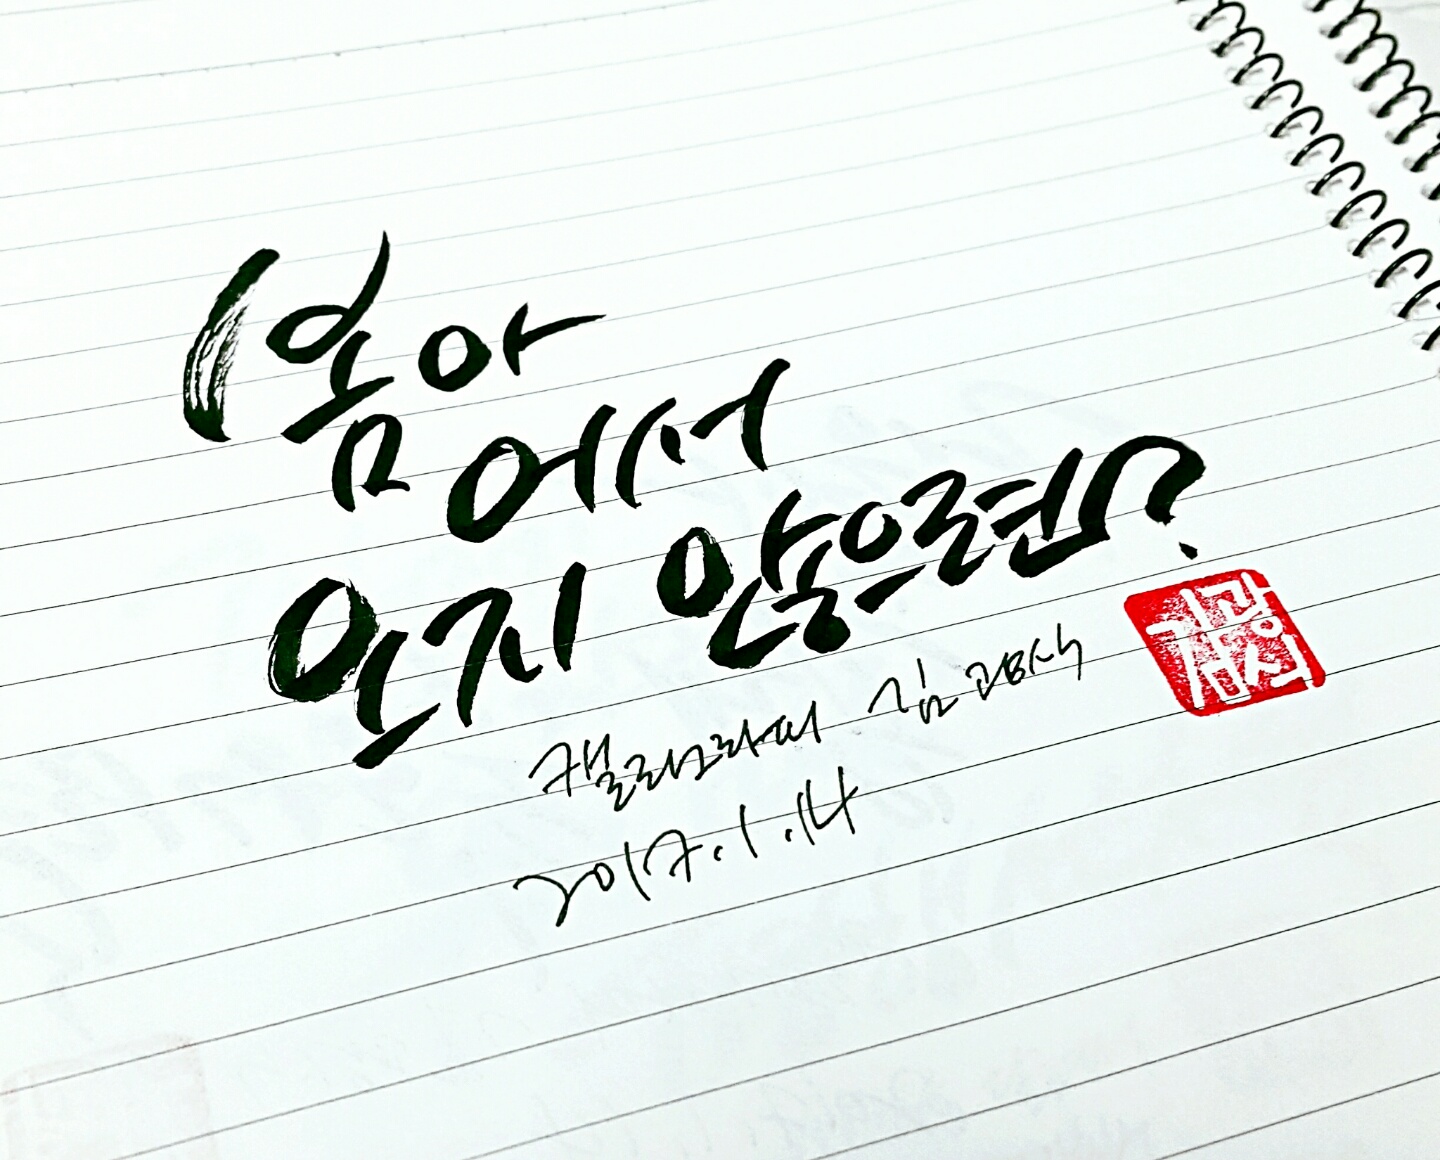 봄아
어서
오지 않으련?
캘리그라피 김광석
2017.1.14